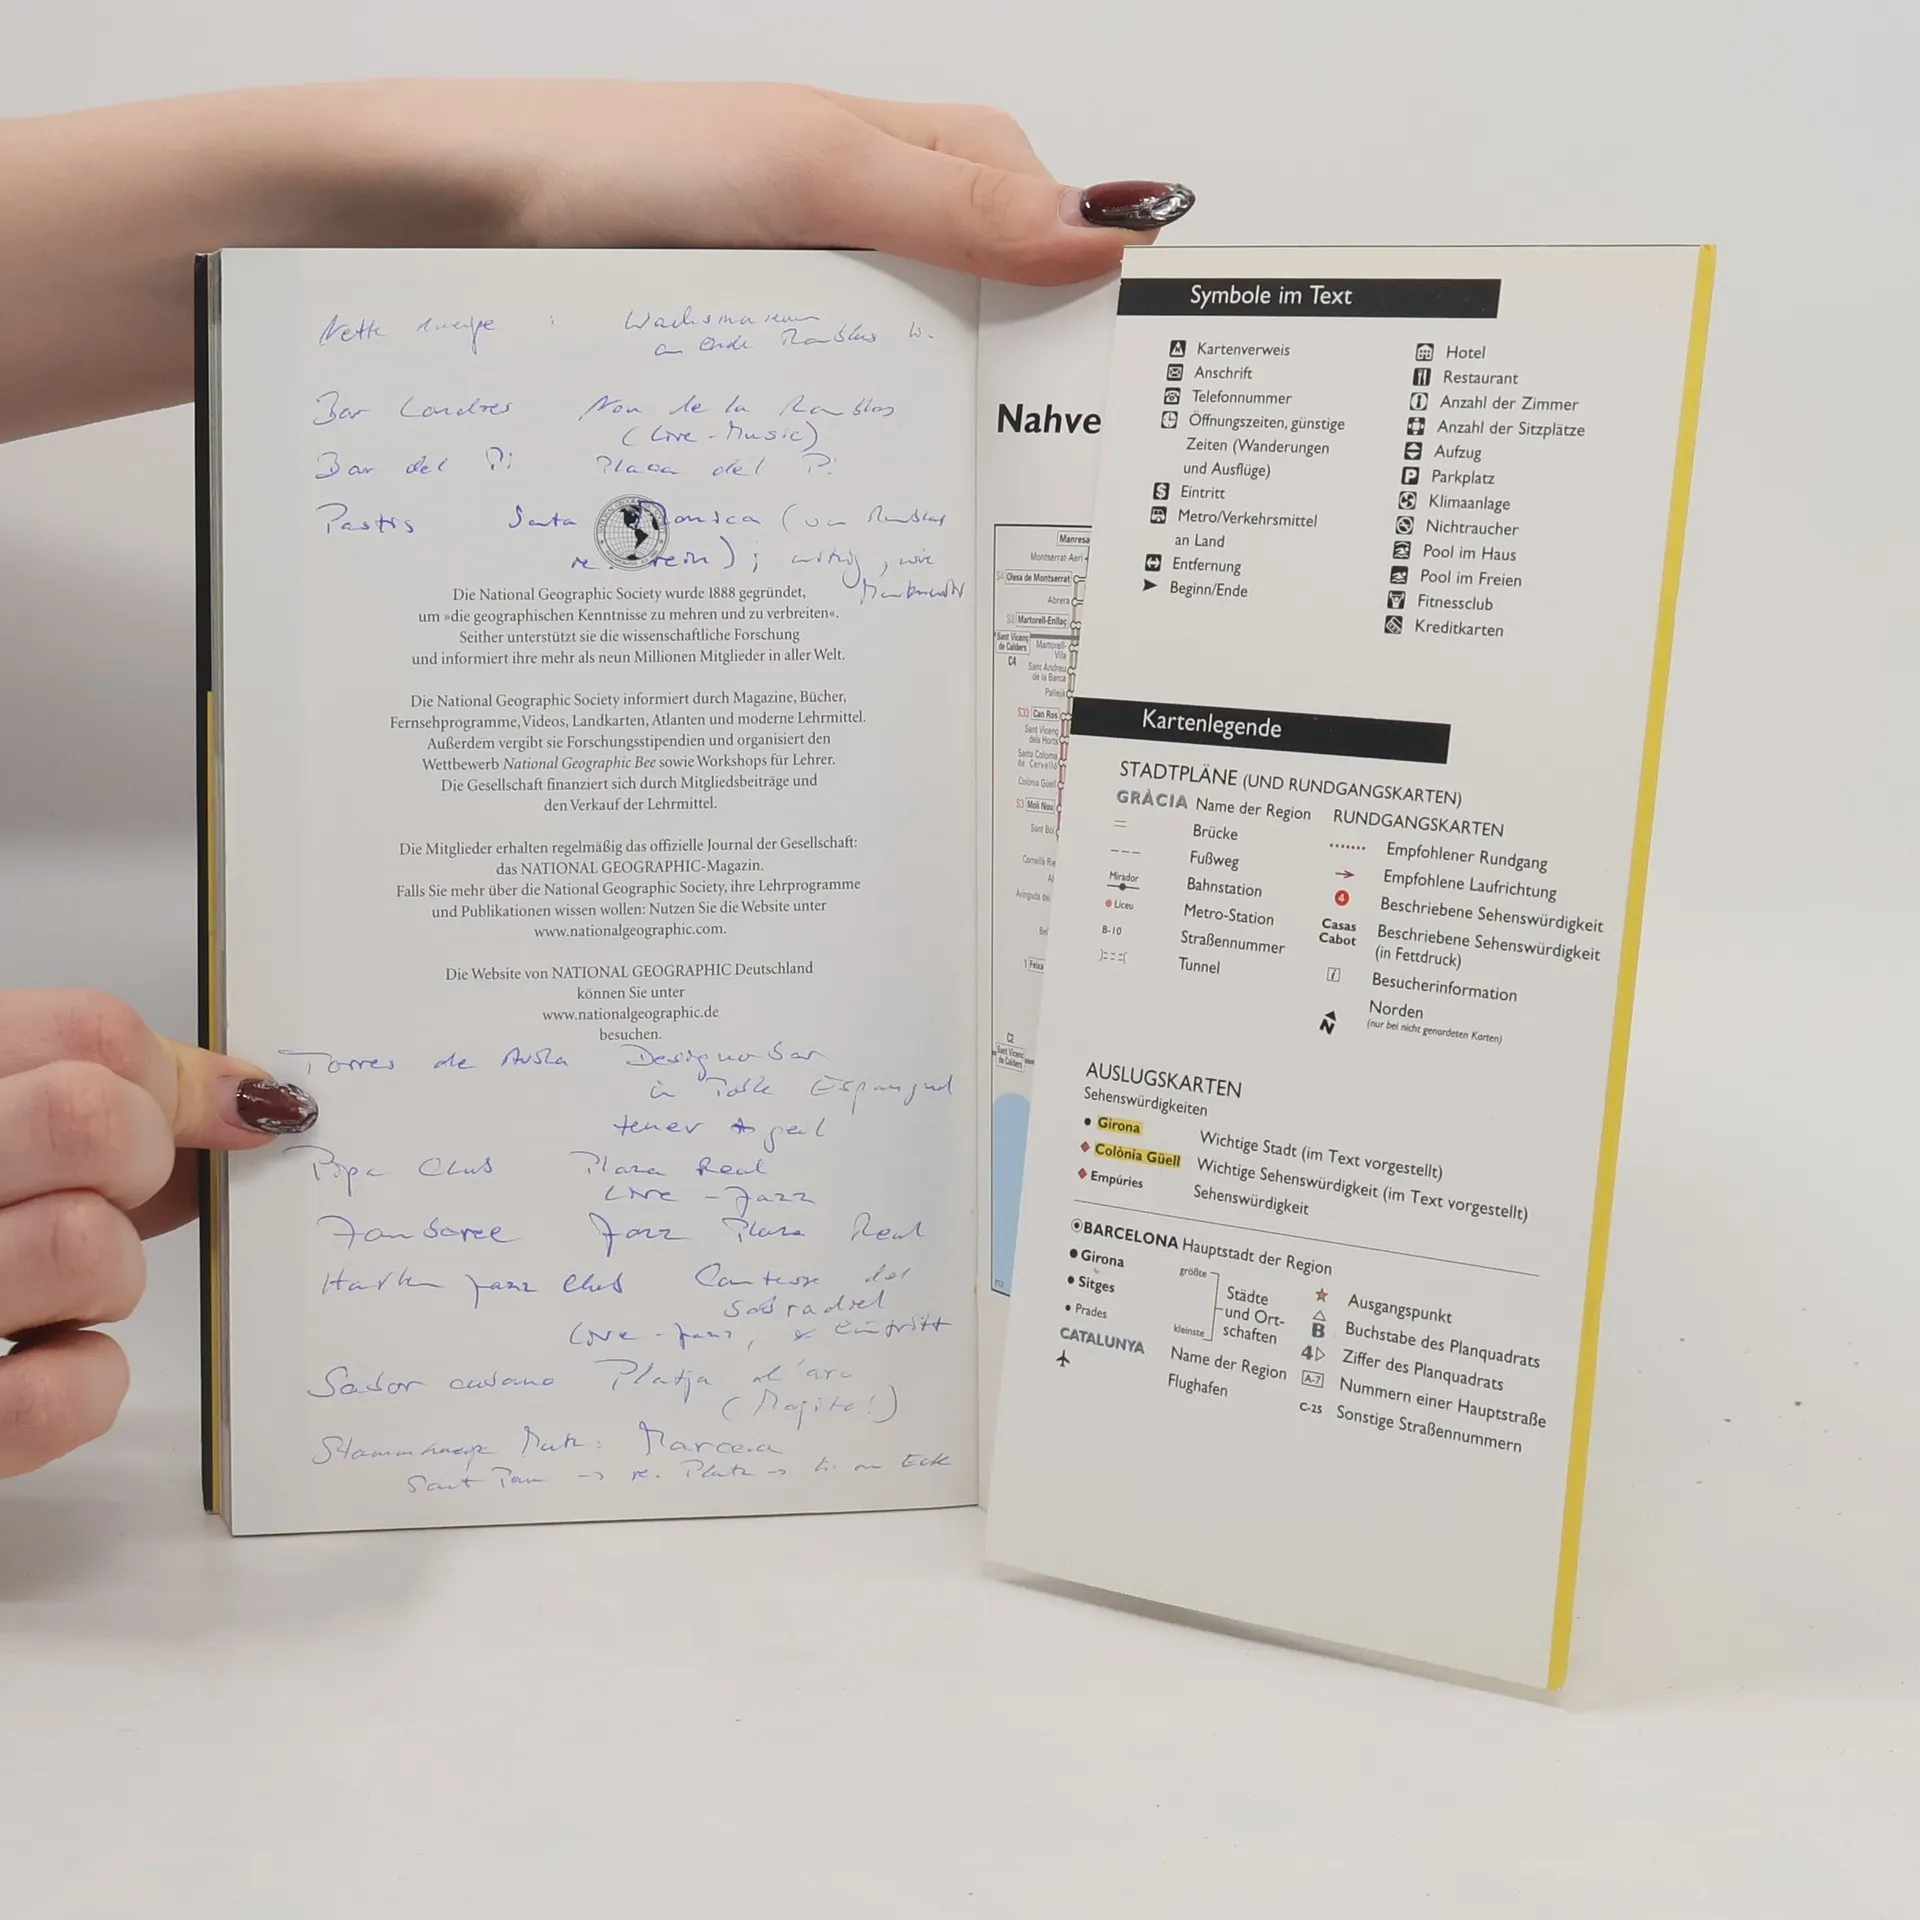 Nette Kneipe :
an Ende Ramblas
Bar Londres Nou de la Ramblas
(Live-Music)
Bar del Pi Placa del Pi
Pastis Santa Monica (von Ramblas
re. rein) ; , wie
Die National Geographic Society wurde 1888 gegründet,
um »die geographischen Kenntnisse zu mehren und zu verbreiten«.
Seither unterstützt sie die wissenschaftliche Forschung
und informiert ihre mehr als neun Millionen Mitglieder in aller Welt.
Die National Geographic Society informiert durch Magazine, Bücher,
Fernsehprogramme, Videos, Landkarten, Atlanten und moderne Lehrmittel.
Außerdem vergibt sie Forschungsstipendien und organisiert den
Wettbewerb National Geographic Bee sowie Workshops für Lehrer.
Die Gesellschaft finanziert sich durch Mitgliedsbeiträge und
den Verkauf der Lehrmittel.
Die Mitglieder erhalten regelmäßig das offizielle Journal der Gesellschaft:
das NATIONAL GEOGRAPHIC-Magazin.
Falls Sie mehr über die National Geographic Society, ihre Lehrprogramme
und Publikationen wissen wollen: Nutzen Sie die Website unter
www.nationalgeographic.com.
Die Website von NATIONAL GEOGRAPHIC Deutschland
können Sie unter
www.nationalgeographic.de
besuchen.
Torres de Avila Designerbar
in
teuer
Pipa Club Plaza Real
Live-Jazz
Jamboree Jazz Plaza Real
Harlem Jazz Club
Live-Jazz, Eintritt
Sabor cubano Platja d'aro
(Mojito!)
Stammkneipe
Sant Pau -> re. Platz -> li. an Ecke
Nahve
Manresa
Montserrat-Aeri
S4 Olesa de Montserrat
Abrera
S8 Martorell-Enllaç
Sant Vicenç
de Calders
C4
Martorell-
Vila
Sant Andreu
de la Barca
Pallejà
S33 Can Ros
Sant Vicenç
dels Horts
Santa Coloma
de Cervelló
Colònia Güell
S3 Molí Nou
Sant Boi
C2
Sant Vicenç
de Calders
Symbole im Text
Kartenverweis
Anschrift
Telefonnummer
Öffnungszeiten, günstige
Zeiten (Wanderungen
und Ausflüge)
Eintritt
Metro/Verkehrsmittel
an Land
Entfernung
Beginn/Ende
Hotel
Restaurant
Anzahl der Zimmer
Anzahl der Sitzplätze
Aufzug
Parkplatz
Klimaanlage
Nichtraucher
Pool im Haus
Pool im Freien
Fitnessclub
Kreditkarten
Kartenlegende
STADTPLÄNE (UND RUNDGANGSKARTEN)
GRÀCIA Name der Region
Brücke
Fußweg
Mirador Bahnstation
Liceu Metro-Station
B-10 Straßennummer
Tunnel
RUNDGANGSKARTEN
Empfohlener Rundgang
Empfohlene Laufrichtung
4 Beschriebene Sehenswürdigkeit
Casas Cabot Beschriebene Sehenswürdigkeit
(in Fettdruck)
i Besucherinformation
N Norden
(nur bei nicht genordeten Karten)
AUSLUGSKARTEN
Sehenswürdigkeiten
Girona Wichtige Stadt (im Text vorgestellt)
Colònia Güell Wichtige Sehenswürdigkeit (im Text vorgestellt)
Empúries Sehenswürdigkeit
BARCELONA Hauptstadt der Region
Girona
Sitges
Prades
größte
kleinste
Städte
und Ort-
schaften
CATALUNYA Name der Region
Flughafen
Ausgangspunkt
B Buchstabe des Planquadrats
4 Ziffer des Planquadrats
A-7 Nummern einer Hauptstraße
C-25 Sonstige Straßennummern